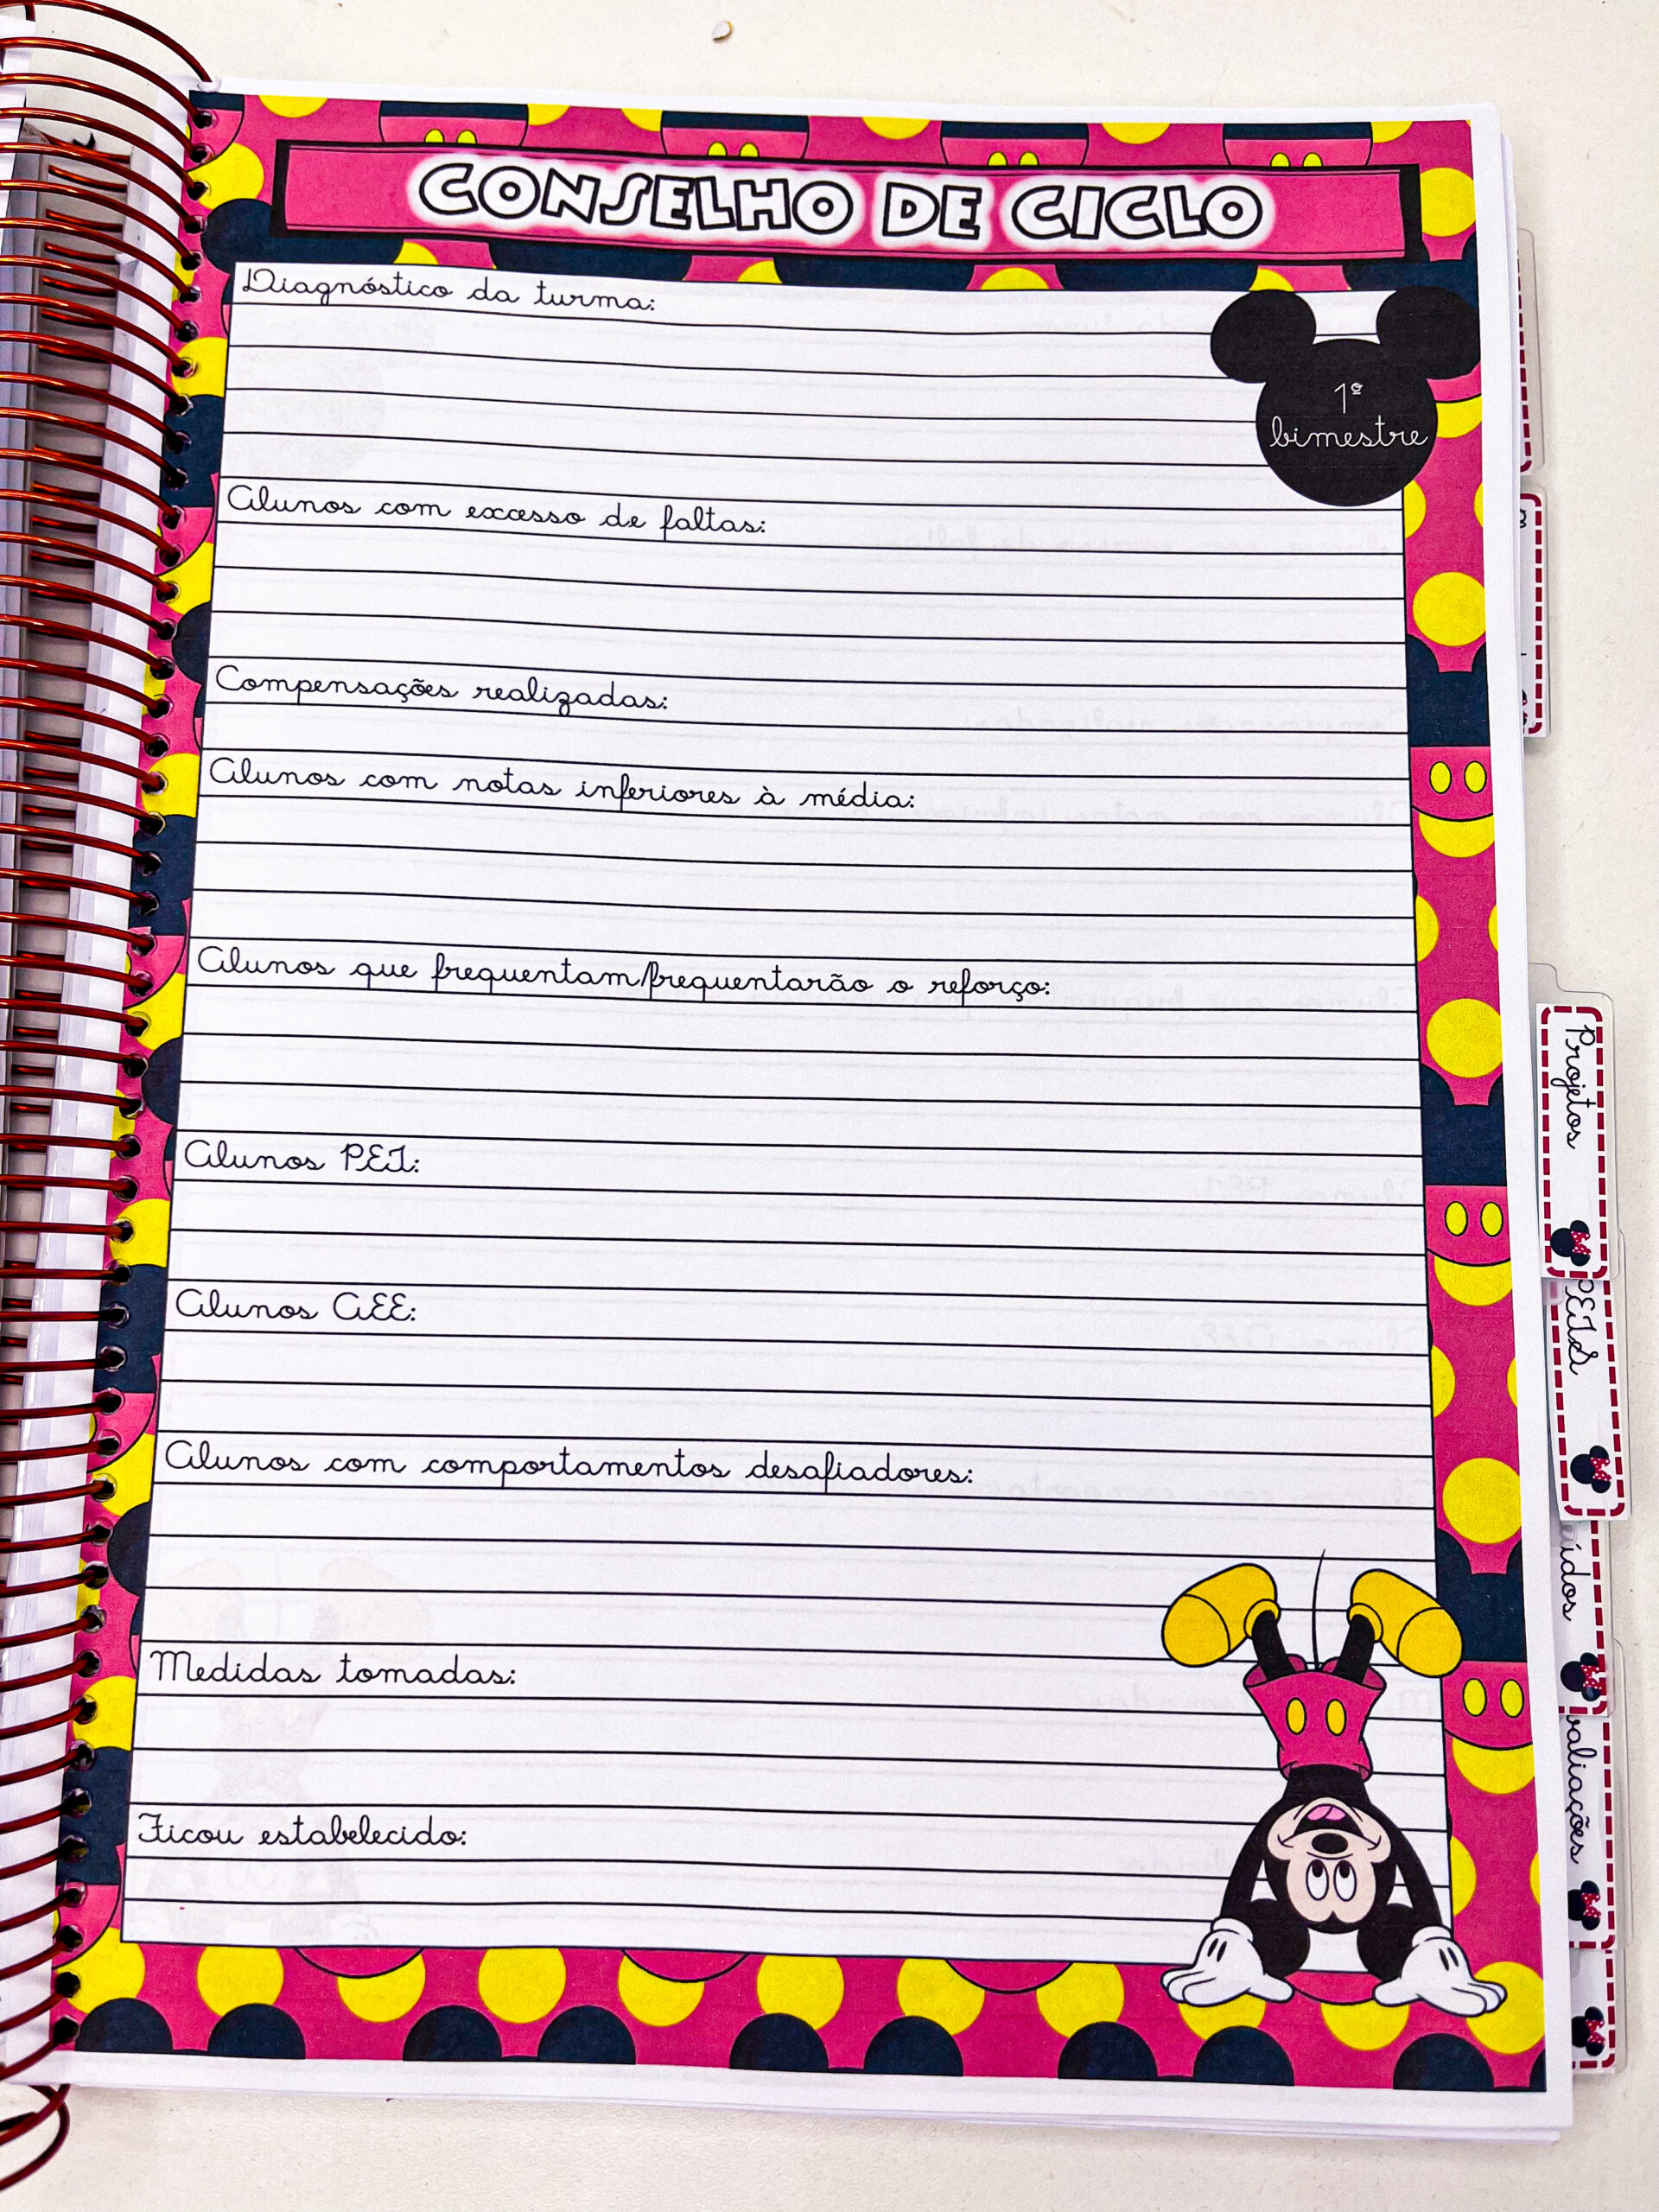 CONSELHO DE CICLO
Diagnóstico da turma:
1º
bimestre
Alunos com excesso de faltas:
Compensações realizadas:
Alunos com notas inferiores à média:
Alunos que frequentam/frequentarão o reforço:
Alunos PEI:
Alunos AEE:
Alunos com comportamentos desafiadores:
Medidas tomadas:
Ficou estabelecido:
Projetos
PEIS
údos
valiações